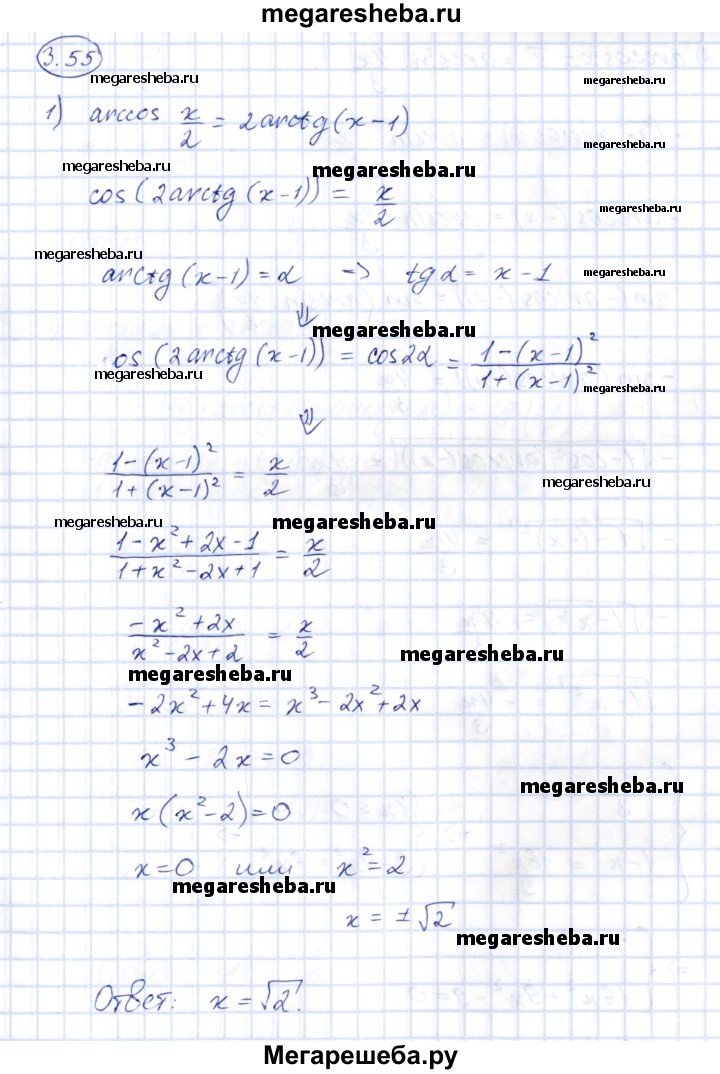 megaresheba.ru
3.55
megaresheba.ru megaresheba.ru
1) arccos x/2 = 2arctg(x-1)
megaresheba.ru megaresheba.ru
cos(2arctg(x-1)) = x/2
megaresheba.ru
megaresheba.ru
arctg(x-1) = α -> tgα = x-1
megaresheba.ru
⇓
megaresheba.ru
os(2arctg(x-1)) = cos2α = (1-(x-1)²)/(1+(x-1)²)
megaresheba.ru megaresheba.ru
⇓
(1-(x-1)²)/(1+(x-1)²) = x/2
megaresheba.ru
megaresheba.ru megaresheba.ru
(1-x²+2x-1)/(1+x²-2x+1) = x/2
(-x²+2x)/(x²-2x+2) = x/2
megaresheba.ru
megaresheba.ru
-2x²+4x = x³-2x²+2x
x³-2x=0
megaresheba.ru
x(x²-2)=0
x=0 или x²=2
megaresheba.ru
x = ±√2
megaresheba.ru
Ответ: x=√2.
Мегарешеба.ру